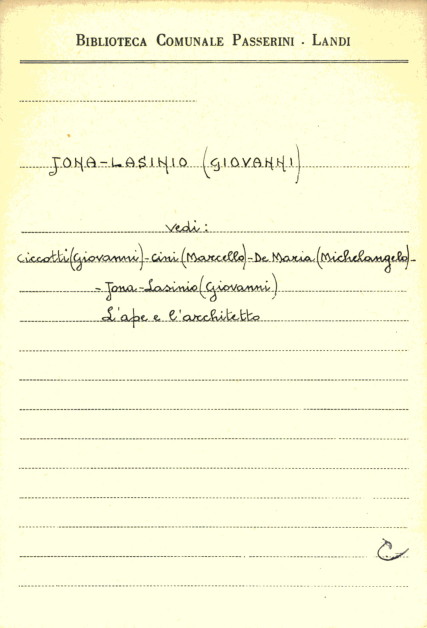 BIBLIOTECA COMUNALE PASSERINI - LANDI
JONA-LASINIO (GIOVANNI)
vedi:
Ciccotti (Giovanni) - Cini (Marcello) - De Maria (Michelangelo) -
- Jona-Lasinio (Giovanni)
L'ape e l'architetto
C.